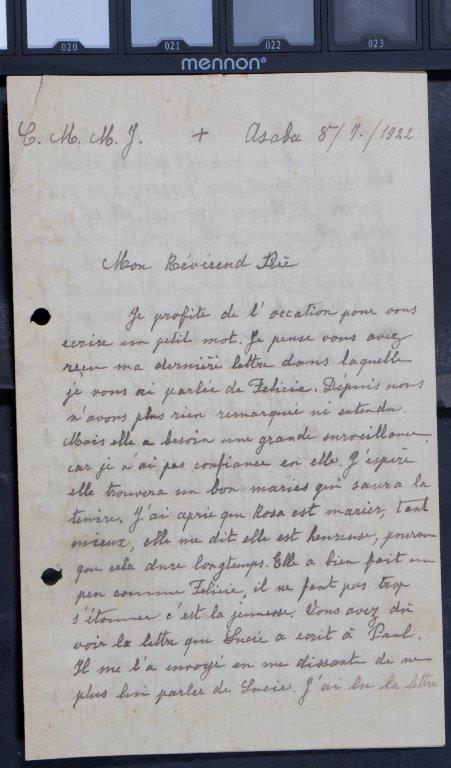 020 021 022 023
mennon®
C. M. M. J. + Asaba 8/7./1922
Mon Révérend Père
Je profite de l'occation pour vous
ecrire un petit mot. Je pense vous avez
reçu ma dernière lettre dans laquelle
je vous ai parlée de Felicie. Depuis nous
n'avons plus rien remarquée ni entendu.
Mais elle a besoin une grande surveillance,
car je n'ai pas confiance en elle. J'espère
elle trouvera un bon maries qui saura la
tenire. J'ai aprie que Rosa est marier, tant
mieux, elle me dit elle est heureuse, pourvu
que cela dure longtemps. Elle a bien fait un
peu comme Felicie, il ne faut pas trop
s'étonner c'est la jeunesse. Vous avez dû
voir la lettre que Lucie a ecrit à Paul.
Il me l'a envoyé en me dissante de ne
plus lui parlée de Lucie. J'ai lu la lettre